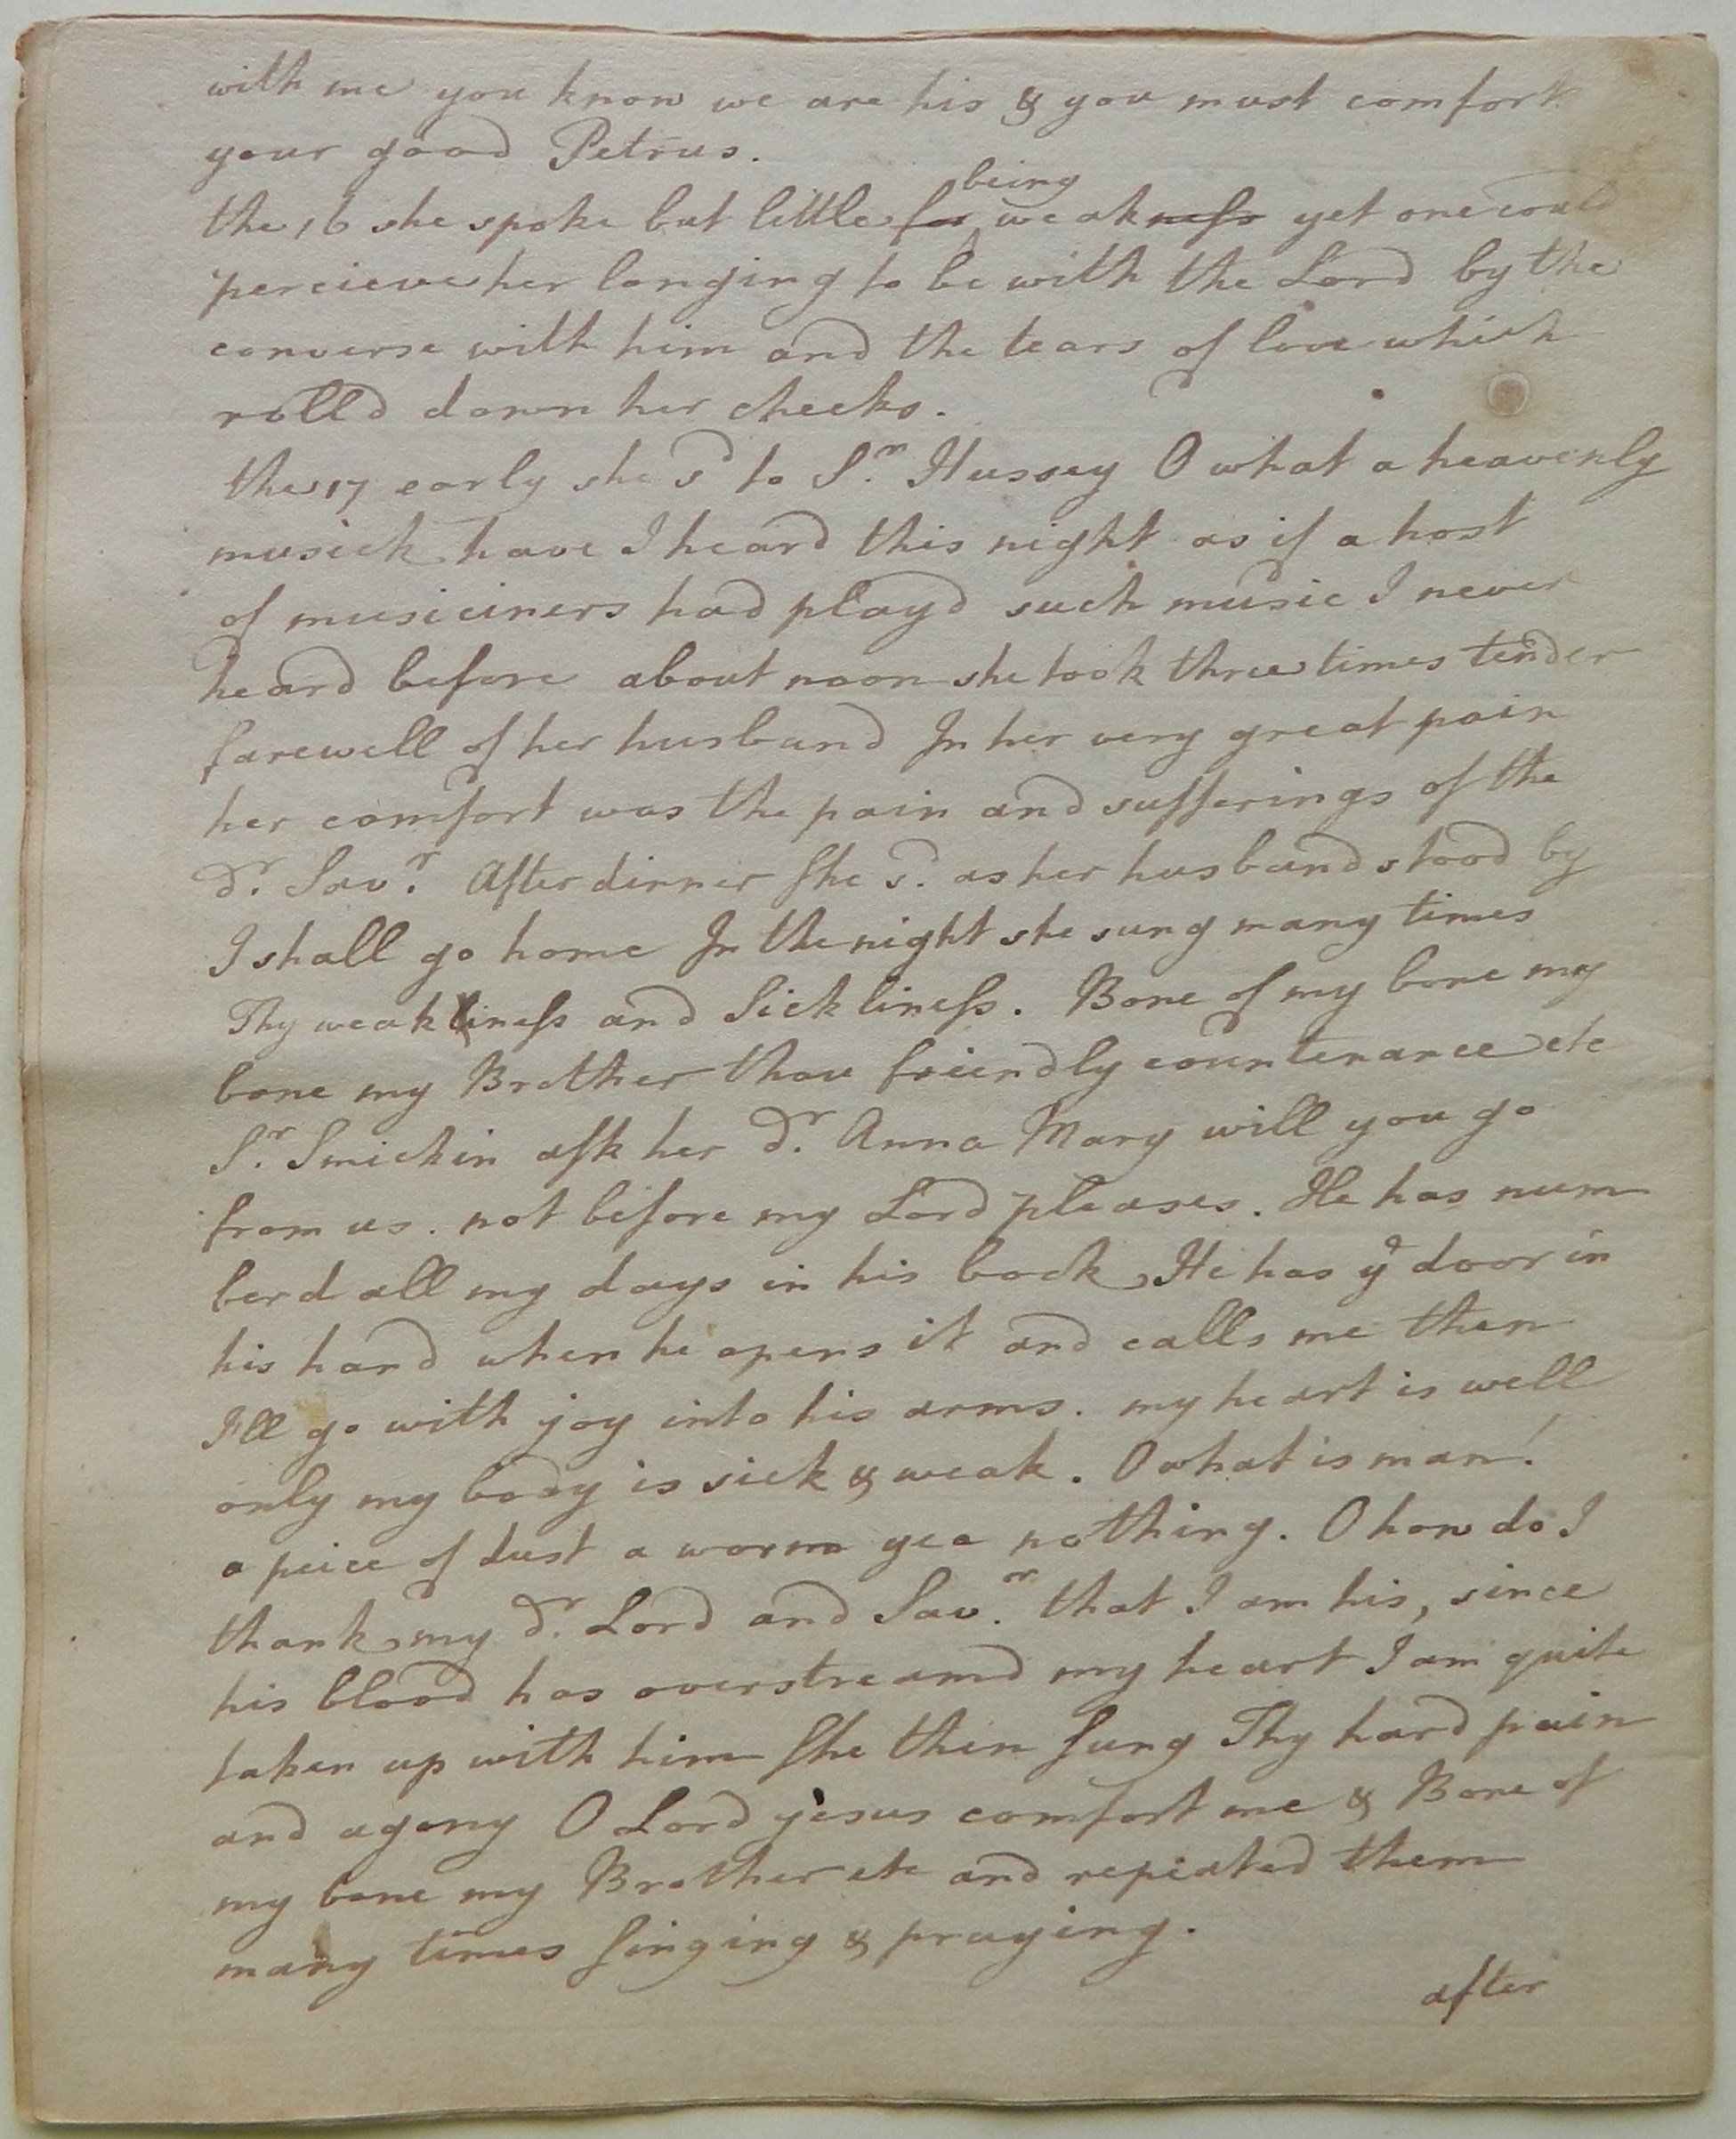 with me you know we are his & you must comfort
your good Petrus.
being
the 16 she spoke but little for weakness yet one could
percieve her longing to be with the Lord by the
converse with him and the tears of love which
rolld down her cheeks.
the 17 early she sd to Sr. Hussey O what a heavenly
musick have I heard this night as if a host
of musiciners had playd such music I never
heard before about noon she took three times tender
farewell of her husband In her very great pain
her comfort was the pain and sufferings of the
dr. Savr. After dinner She sd. as her husband stood by
I shall go home In the night she sung many times
Thy weakliness and Sickliness. Bone of my bone my
bone my Brother thou friendly countenance etc
Sr. Smickin ask her dr. Anna Mary will you go
from us. not before my Lord pleases. He has num
berd all my days in his book, He has ye door in
his hand when he opens it and calls me then
I'll go with joy into his arms. my heart is well
only my body is sick & weak. O what is man!
a peice of dust a worm yea nothing. O how do I
thank my dr. Lord and Savr. that I am his, since
his blood has overstreamd my heart I am quite
taken up with him She then Sung Thy hard pain
and agony O Lord jesus comfort me & Bone of
my bone my Brother etc and repeated them
many times Singing & praying.
after